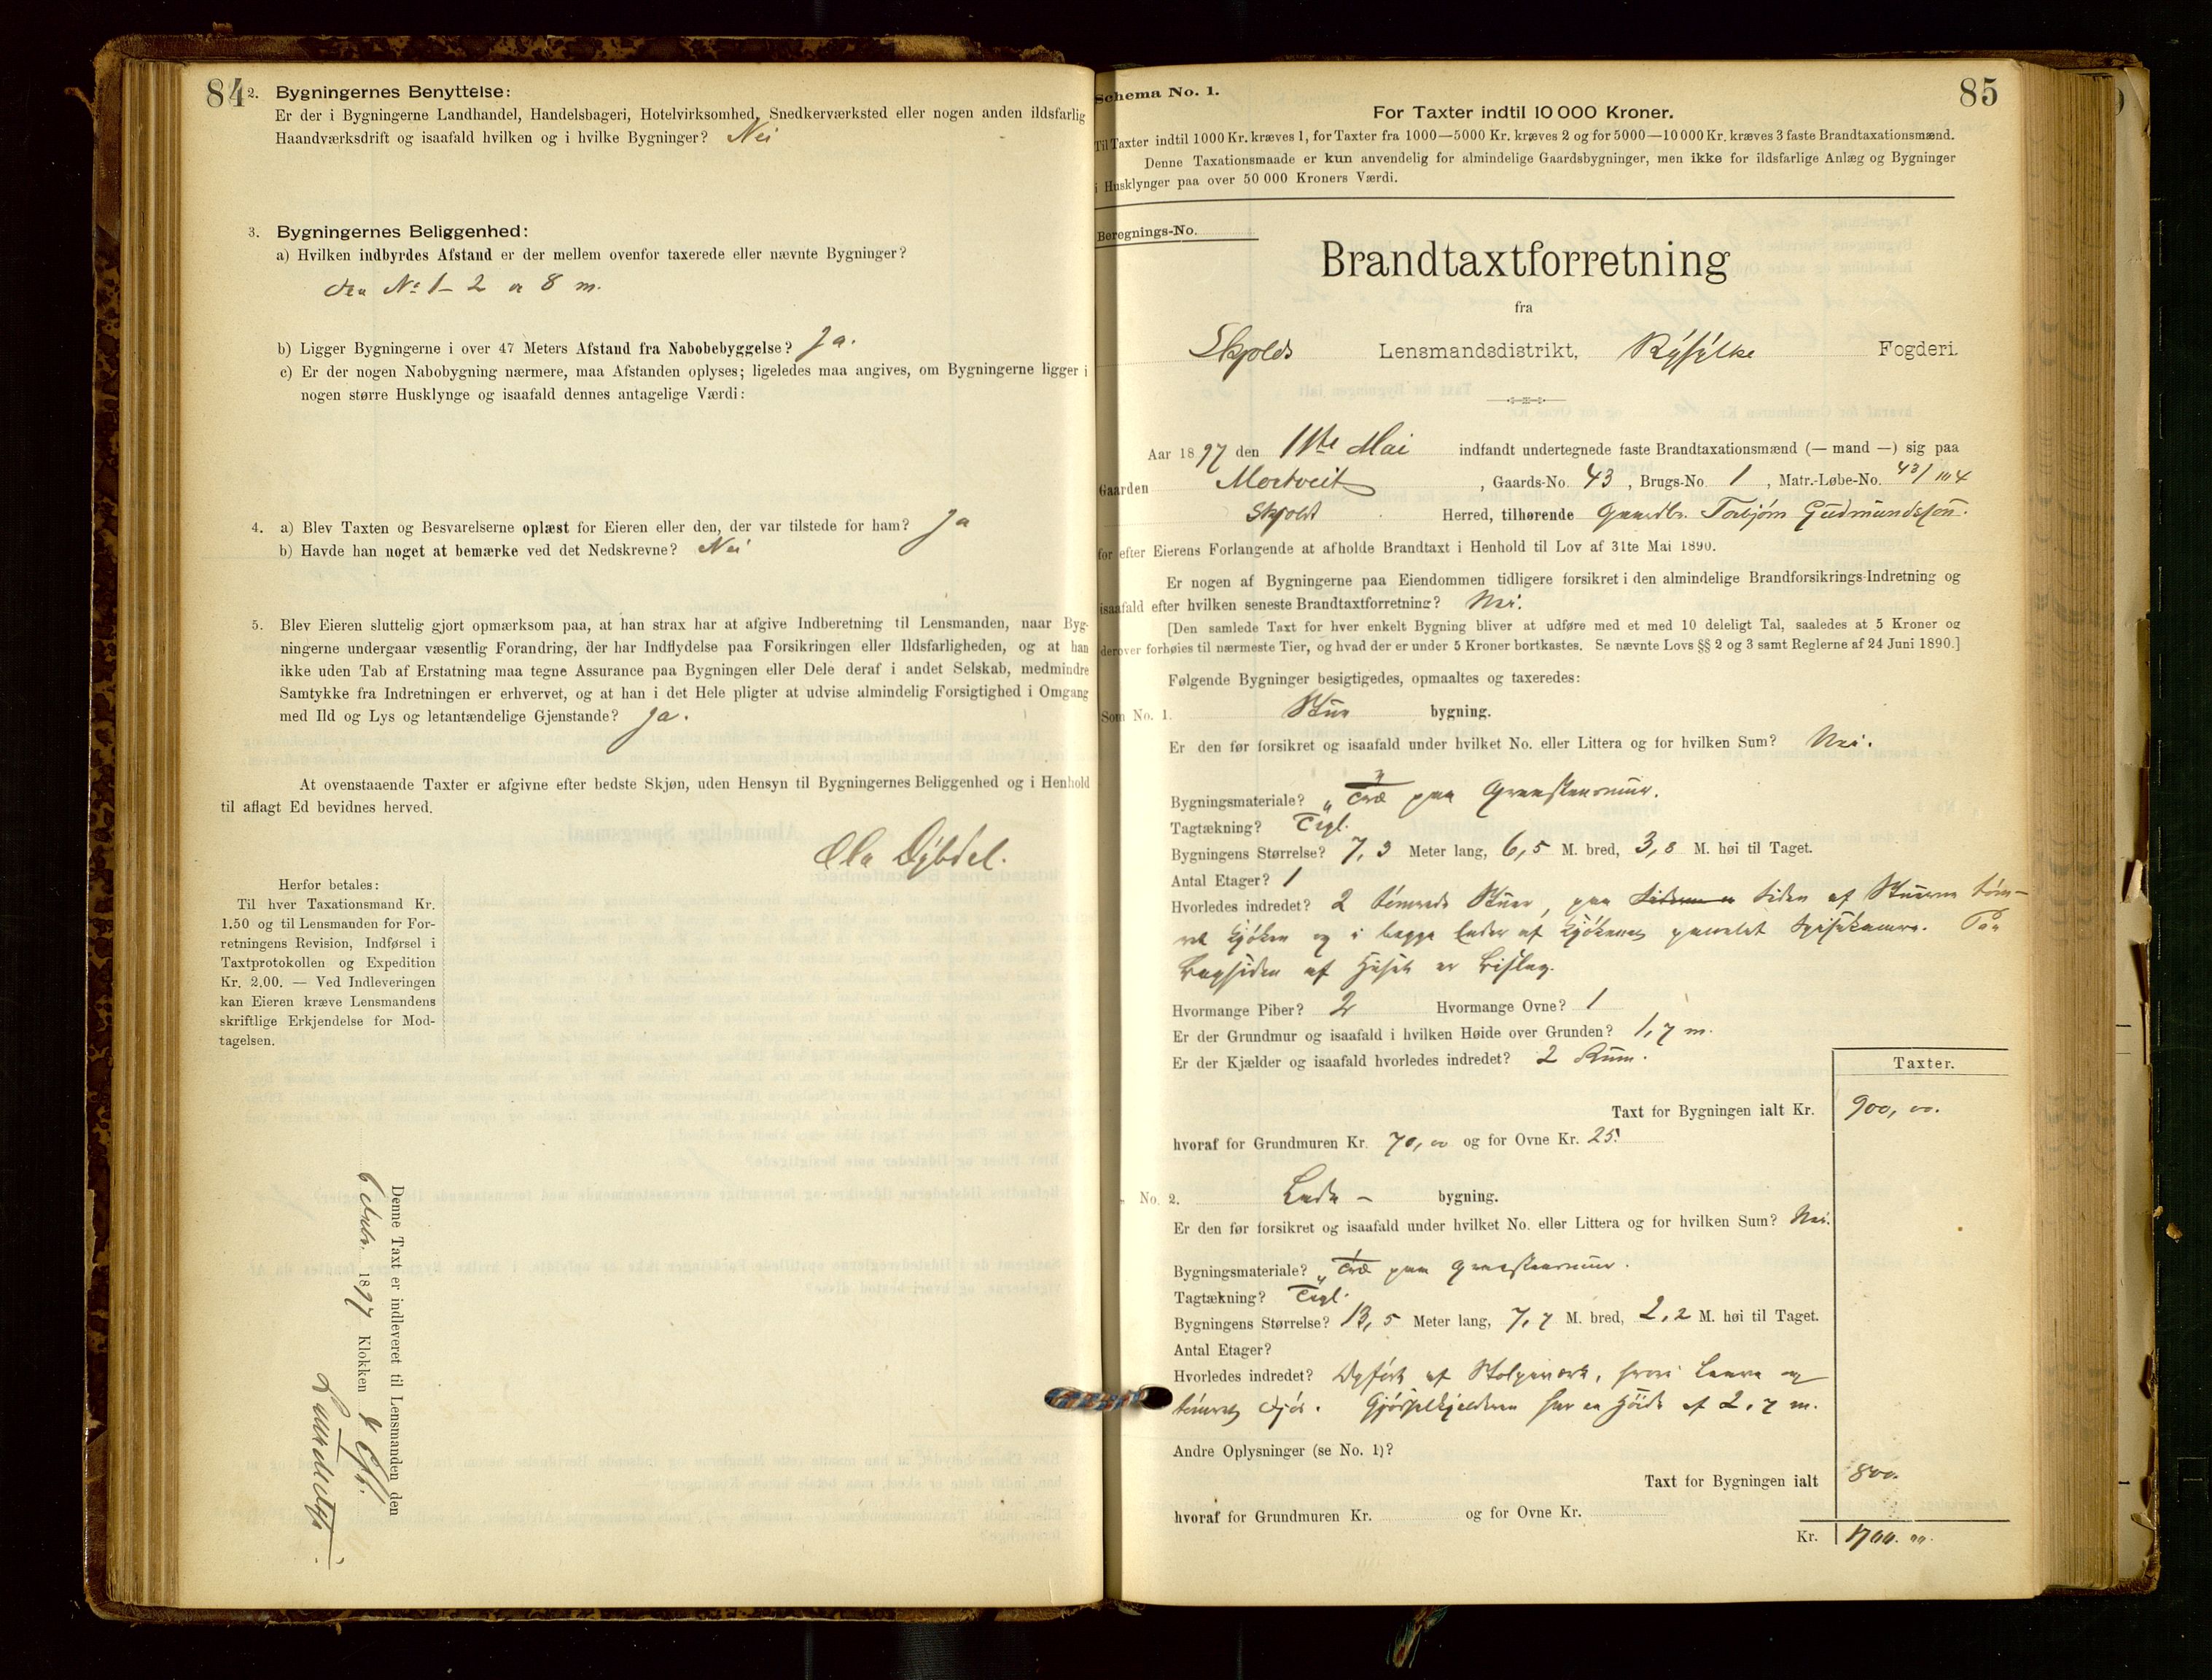 84
2. Bygningernes Benyttelse:
Er der i Bygningerne Landhandel, Handelsbageri, Hotelvirksomhed, Snedkerværksted eller nogen anden ildsfarlig
Haandværksdrift og isaafald hvilken og i hvilke Bygninger? Nei
3. Bygningernes Beliggenhed:
a) Hvilken indbyrdes Afstand er der mellem ovenfor taxerede eller nævnte Bygninger?
No 1 - 2 er 8 m.
b) Ligger Bygningerne i over 47 Meters Afstand fra Nabobebyggelse? Ja.
c) Er der nogen Nabobygning nærmere, maa Afstanden oplyses; ligeledes maa angives, om Bygningerne ligger i
nogen større Husklynge og isaafald dennes antagelige Værdi:
4. a) Blev Taxten og Besvarelserne oplæst for Eieren eller den, der var tilstede for ham? Ja
b) Havde han noget at bemærke ved det Nedskrevne? Nei
5. Blev Eieren sluttelig gjort opmærksom paa, at han strax har at afgive Indberetning til Lensmanden, naar Byg-
ningerne undergaar væsentlig Forandring, der har Indflydelse paa Forsikringen eller Ildsfarligheden, og at han
ikke uden Tab af Erstatning maa tegne Assurance paa Bygningen eller Dele deraf i andet Selskab, medmindre
Samtykke fra Indretningen er erhvervet, og at han i det Hele pligter at udvise almindelig Forsigtighed i Omgang
med Ild og Lys og letantændelige Gjenstande? Ja.
At ovenstaaende Taxter er afgivne efter bedste Skjøn, uden Hensyn til Bygningernes Beliggenhed og i Henhold
til aflagt Ed bevidnes herved.
Ola Dybdel.
Herfor betales:
Til hver Taxationsmand Kr.
1.50 og til Lensmanden for For-
retningens Revision, Indførsel i
Taxtprotokollen og Expedition
Kr. 2.00. — Ved Indleveringen
kan Eieren kræve Lensmandens
skriftlige Erkjendelse for Mod-
tagelsen.
Denne Taxt er indleveret til Lensmanden den
6 1897 Klokken
85
Schema No. 1.
For Taxter indtil 10 000 Kroner.
Til Taxter indtil 1000 Kr. kræves 1, for Taxter fra 1000—5000 Kr. kræves 2 og for 5000—10 000 Kr. kræves 3 faste Brandtaxationsmænd.
Denne Taxationsmaade er kun anvendelig for almindelige Gaardsbygninger, men ikke for ildsfarlige Anlæg og Bygninger
i Husklynger paa over 50 000 Kroners Værdi.
Beregnings-No.
Brandtaxtforretning
fra
Skjolds Lensmandsdistrikt, Ryfylke Fogderi.
Aar 1897 den 11te Mai indfandt undertegnede faste Brandtaxationsmænd (— mand —) sig paa
Gaarden Mortveit, Gaards-No. 43, Brugs-No. 1, Matr.-Løbe-No. 43/
Skjold Herred, tilhørende Gaardbr. Torbjørn Gudmundssøn.
for efter Eierens Forlangende at afholde Brandtaxt i Henhold til Lov af 31te Mai 1890.
Er nogen af Bygningerne paa Eiendommen tidligere forsikret i den almindelige Brandforsikrings-Indretning og
isaafald efter hvilken seneste Brandtaxtforretning? Nei.
[Den samlede Taxt for hver enkelt Bygning bliver at udføre med et med 10 deleligt Tal, saaledes at 5 Kroner og
derover forhøies til nærmeste Tier, og hvad der er under 5 Kroner bortkastes. Se nævnte Lovs §§ 2 og 3 samt Reglerne af 24 Juni 1890.]
Følgende Bygninger besigtigedes, opmaaltes og taxeredes:
Som No. 1. Stue bygning.
Er den før forsikret og isaafald under hvilket No. eller Littera og for hvilken Sum? Nei.
Bygningsmateriale? Træ paa Graastensmur.
Tagtækning? Tegl.
Bygningens Størrelse? 7,3 Meter lang, 6,5 M. bred, 3,8 M. høi til Taget.
Antal Etager? 1
Hvorledes indredet? 2 tømrede Stuer, paa Siden af Stuerne tøm-
ret Kjøken og i begge Ender af Kjøkenet panelet Spisekamre. Paa
Bagsiden af Huset er Bislag.
Hvormange Piber? 2 Hvormange Ovne? 1
Er der Grundmur og isaafald i hvilken Høide over Grunden? 1,7 m.
Er der Kjælder og isaafald hvorledes indredet? 2 Rum.
Taxter.
Taxt for Bygningen ialt Kr. 900, 00.
hvoraf for Grundmuren Kr. 70, 00 og for Ovne Kr. 25.
" No. 2. Lade - bygning.
Er den før forsikret og isaafald under hvilket No. eller Littera og for hvilken Sum? Nei.
Bygningsmateriale? Træ paa Graastensmur.
Tagtækning? Tegl.
Bygningens Størrelse? 13,5 Meter lang, 7,7 M. bred, 2,2 M. høi til Taget.
Antal Etager?
Hvorledes indredet? Opført af Stolpeværk, hvori Laave og
tømret Fjøs. Gjødselkjelderen har en Høide af 2,7 m.
Andre Oplysninger (se No. 1)?
Taxt for Bygningen ialt 800.
hvoraf for Grundmuren Kr. og for Ovne Kr.
Kr. 1700. 00.